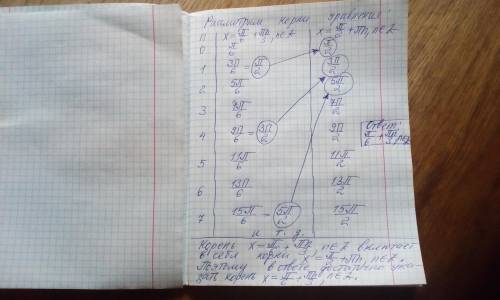 Рассмотрим корни уравнения:
n x = π/6 + πn/3, n∈Z x = π/2 + πn, n∈Z
0 π/6 π/2
1 3π/6 = π/2 3π/2
2 5π/6 5π/2
3 7π/6 7π/2
4 9π/6 = 3π/2 9π/2
Ответ:
π/6 + πn/3, n∈Z
5 11π/6 11π/2
6 13π/6 13π/2
7 15π/6 = 5π/2 15π/2
и т.д.
Корень x = π/6 + πn/3, n∈Z включает
в себя корни x = π/2 + πn, n∈Z.
Поэтому в ответе достаточно ука-
зать корень x = π/6 + πn/3, n∈Z.